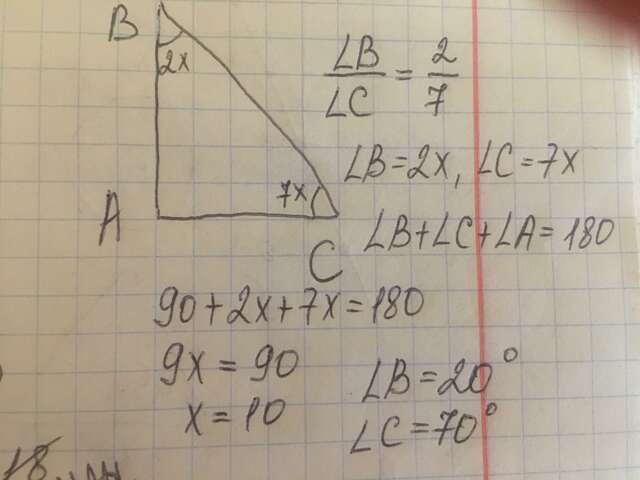 B
2x
∠B/∠C = 2/7
∠B=2x, ∠C=7x
7x
A
C
∠B+∠C+∠A=180
90+2x+7x=180
9x=90
x=10
∠B=20°
∠C=70°
18